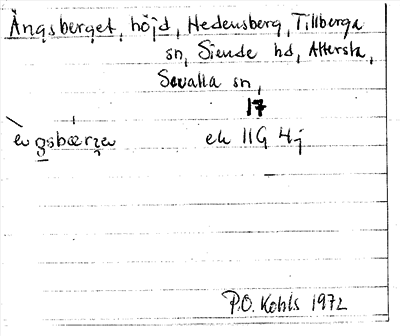 Ängsberget, höjd, Hedensberg, Tillberga
sn, Siende hd, Altersta,
Sevalla sn,
17
ek 11G 4j
P.O. Kohls 1972